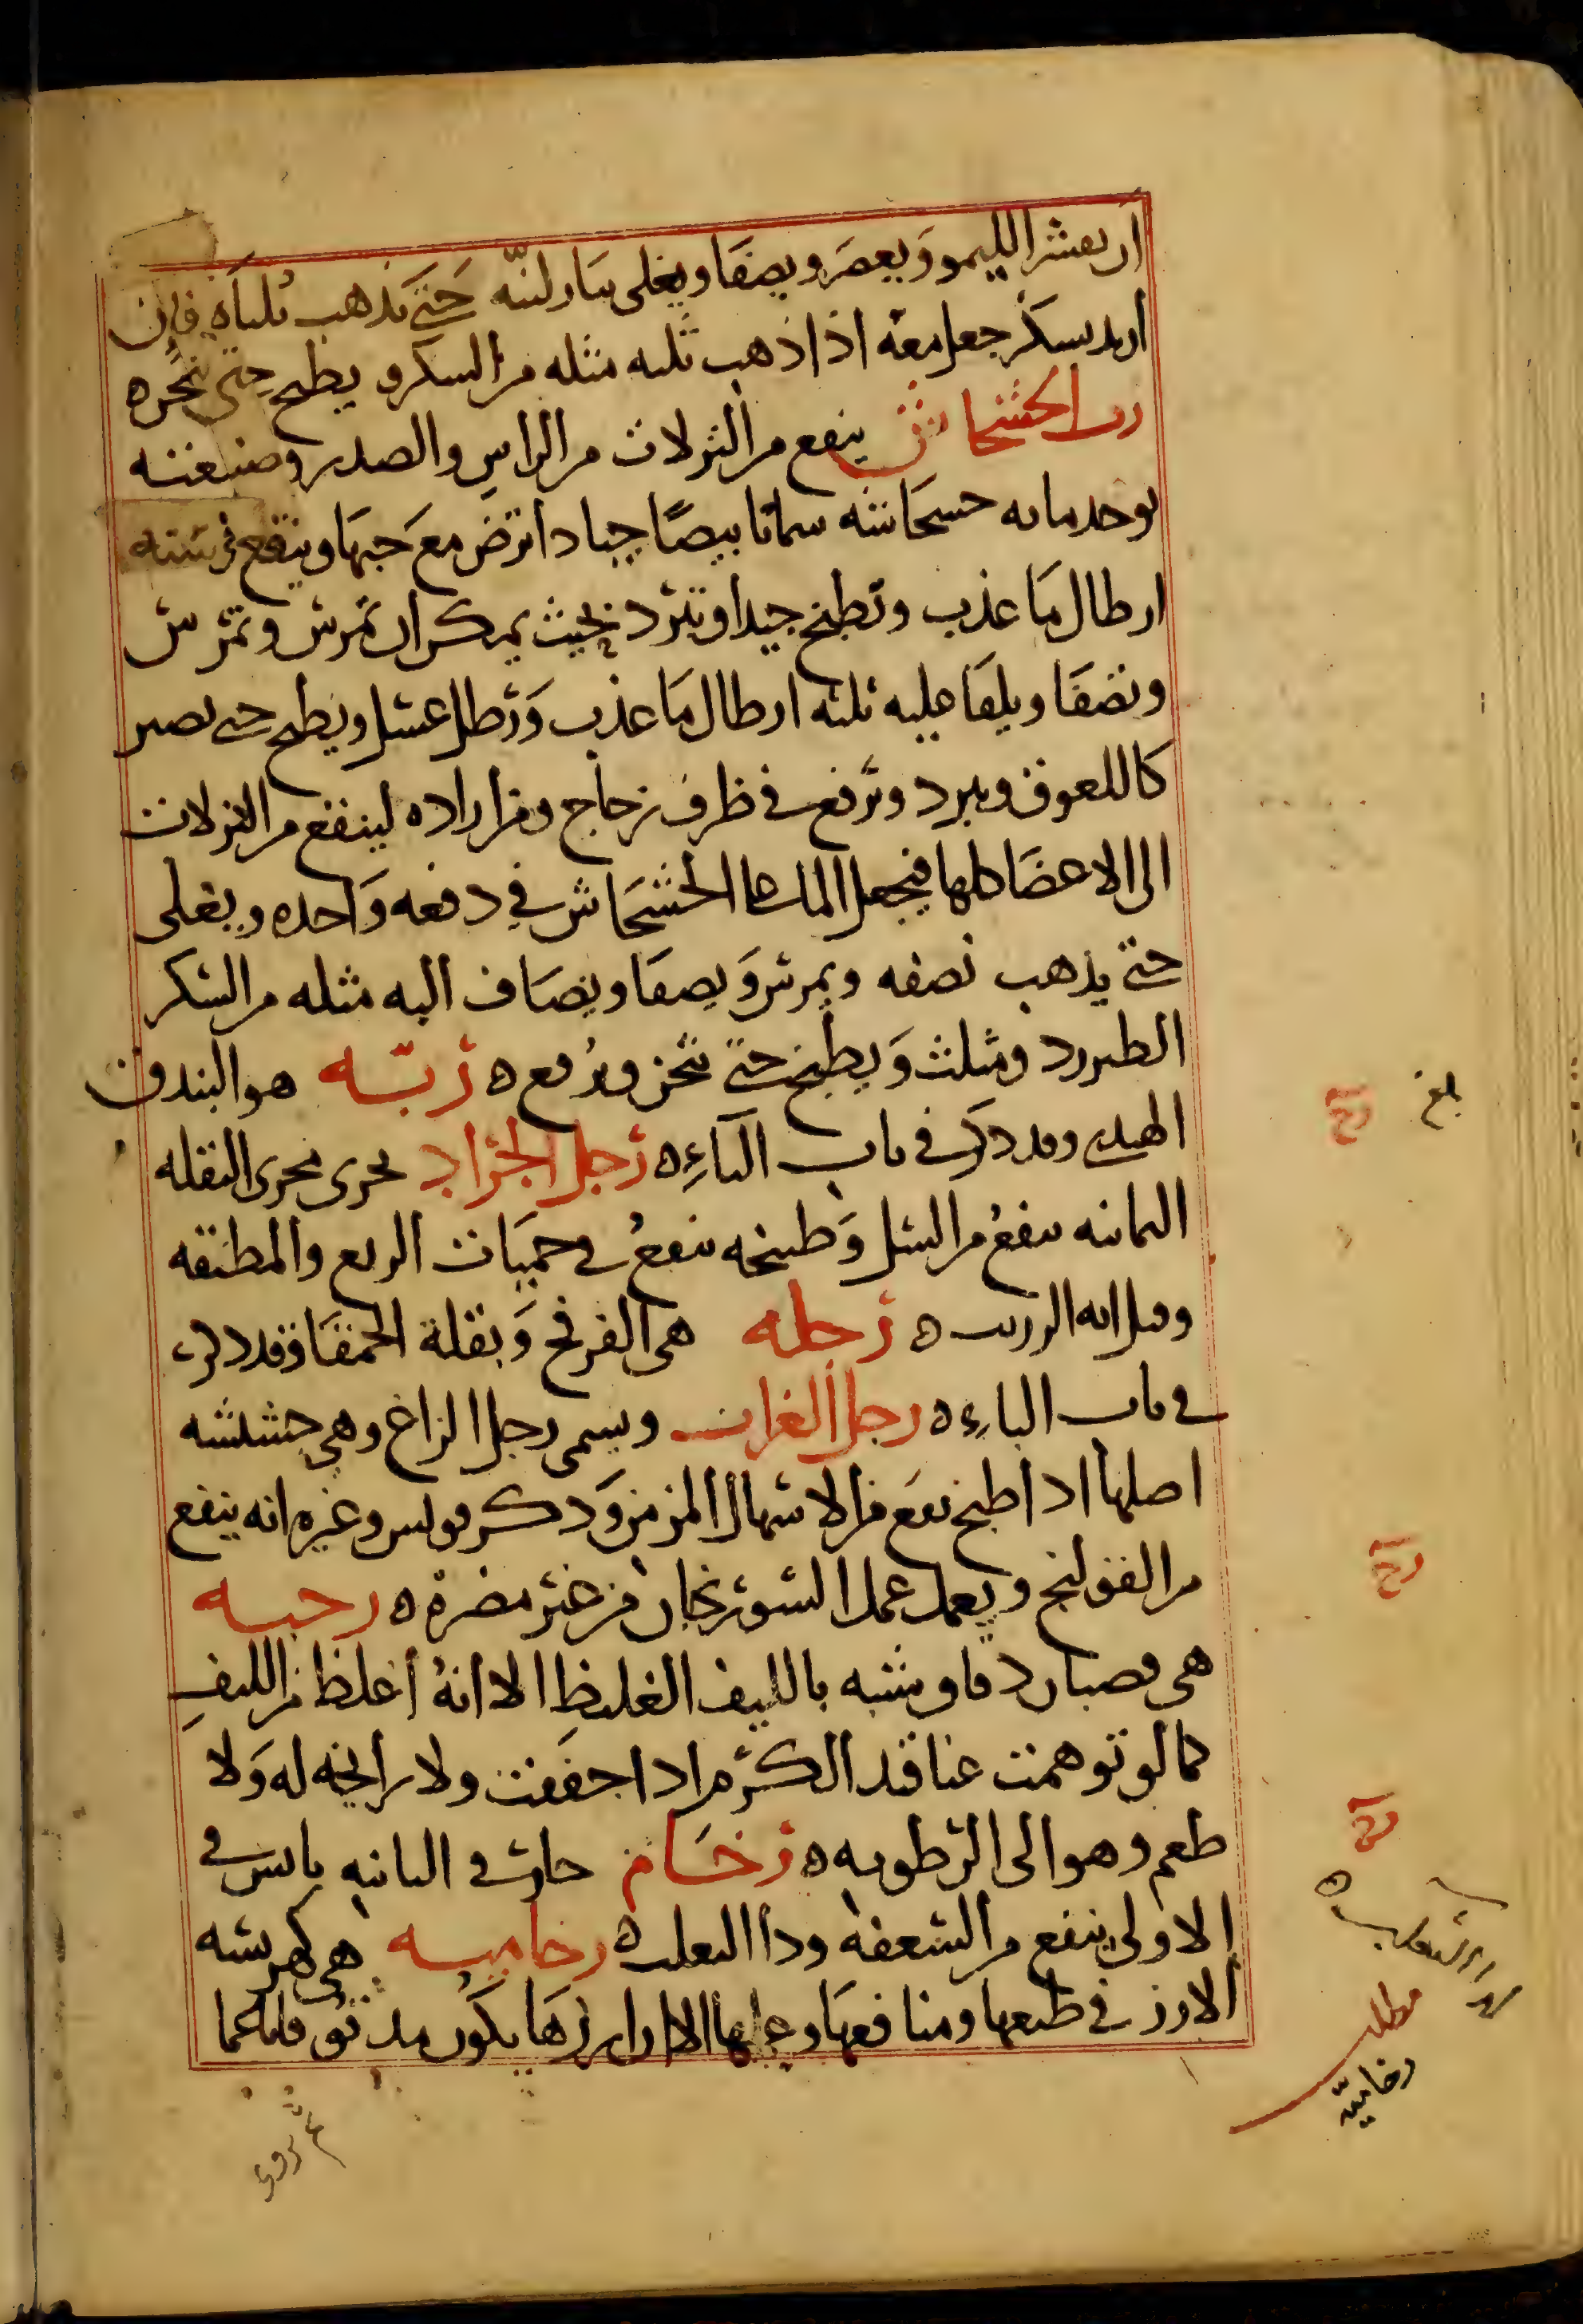 ان يعشر الليمو وَيعصَر ويصفَا ويغلى بنار لينّه حَتى يَذهب ثلثاه فان
اريد بسكر جعل معه اذا ذهب ثلثه مثله من السكر ويطبخ حتى يثخن ه
رب الخشخاش ينفع من النزلات من الراسِ والصدر وصنعته
يوخذ مايه خشخاشه سمانا بيضًا جيادا ترض مع حَبهَا وينقع في ستة
ارطال مَا عذب وتطبخ جيدا وتبرد بحيث يمكن ان تمرش وتمرش
وتصفَا ويلقَا عليه ثلثه ارطال مَا عذب وَرطل عسل ويطبخ حتى تصير
كاللعوق ويبرد وترفع في ظرف زجاج ومن اراده لينفع من النزلات
الى الاعضَا كلها فيجعل الما على الخشخَاش في دفعه وَاحده ويغلى
حتى يذهب نصفه ويمرش وَيصفَا ويضَاف اليه مثله من السكر
الطبرزد ومثلث وَيطبخ حتى يثخن ويُرفع ه رتّه هو البندق
الهندي وقد ذكر في باب الباءِ ه رجل الجراد تجرى مجرى البقله
اليمانيه ينفعُ من السل وَطبيخه ينفعُ في حميَات الربع والمطبقه
وقيل انه الزرنب ه رجله هي الفرفخ وَبقلة الحمقَا وقد ذكرت
في باب الباءِ ه رجل الغراب ويسمى رجل الزاغ وهي حشيشه
اصلها اذا طبخ نفعَ من الاسهال المزمن وَذكر فولس وغيره انه ينفع
من القولنج ويعمل عمل السورنجان من غير مضرة ه رجسه
هي قضبان دقاق يشبه بالليف الغليظِ الا انهُ أغلظ من الليفِ
كما لو توهمت عناقيد الكرم اذا جففت ولا رايحه له وَلا
طعم وهو الى الرطوبه ه رخَام حار في الثانيه يابس في
الاولى ينفع من السعفه ودا الثعلب ه رخاميه هي كهريسه
الارز في طبعها ومنافعهَا وعملها الا ان ارزهَا يكون مدقوقا ناعما
بلغ
لداء الثعلب ه
مطلب
رخاميّه